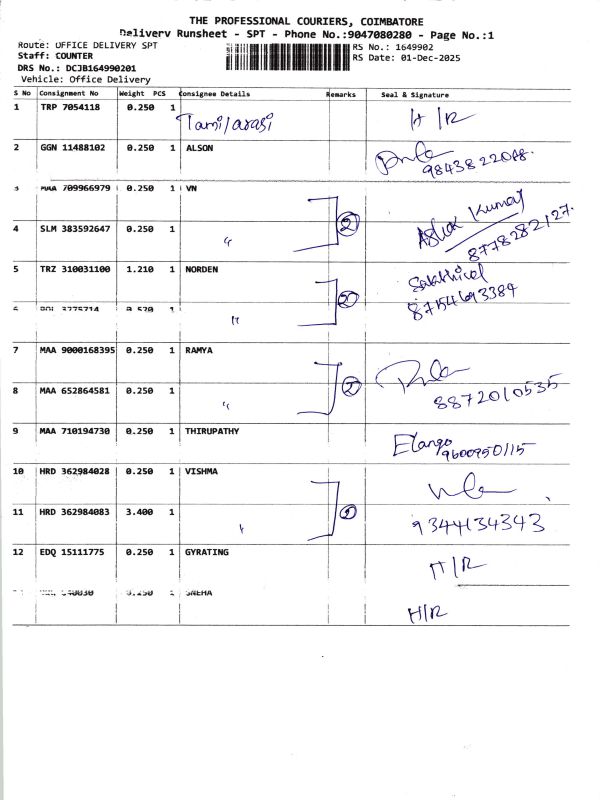 THE PROFESSIONAL COURIERS, COIMBATORE
Delivery Runsheet - SPT - Phone No.:9047080280 - Page No.:1
Route: OFFICE DELIVERY SPT
Staff: COUNTER
DRS No.: DCJB164990201
Vehicle: Office Delivery
RS No.: 1649902
RS Date: 01-Dec-2025
S No Consignment No Weight PCS Consignee Details Remarks Seal & Signature
1 TRP 7054118 0.250 1 Tamilarasi H/R
2 GGN 11488102 0.250 1 ALSON
3 MAA 709966979 0.250 1 VN 2 Ashok Kumar
4 SLM 383592647 0.250 1 " 8778282127.
5 TRZ 310031100 1.210 1 NORDEN 2 Sakthivel
6 3775714 0.570 1 " 87154693384
7 MAA 9000168395 0.250 1 RAMYA 2
8 MAA 652864581 0.250 1 " 8872010535
9 MAA 710194730 0.250 1 THIRUPATHY Elango
9600950115
10 HRD 362984028 0.250 1 VISHMA
11 HRD 362984083 3.400 1 9344134343
12 EDQ 15111775 0.250 1 GYRATING H/R
0.250 1 SNEHA H/R